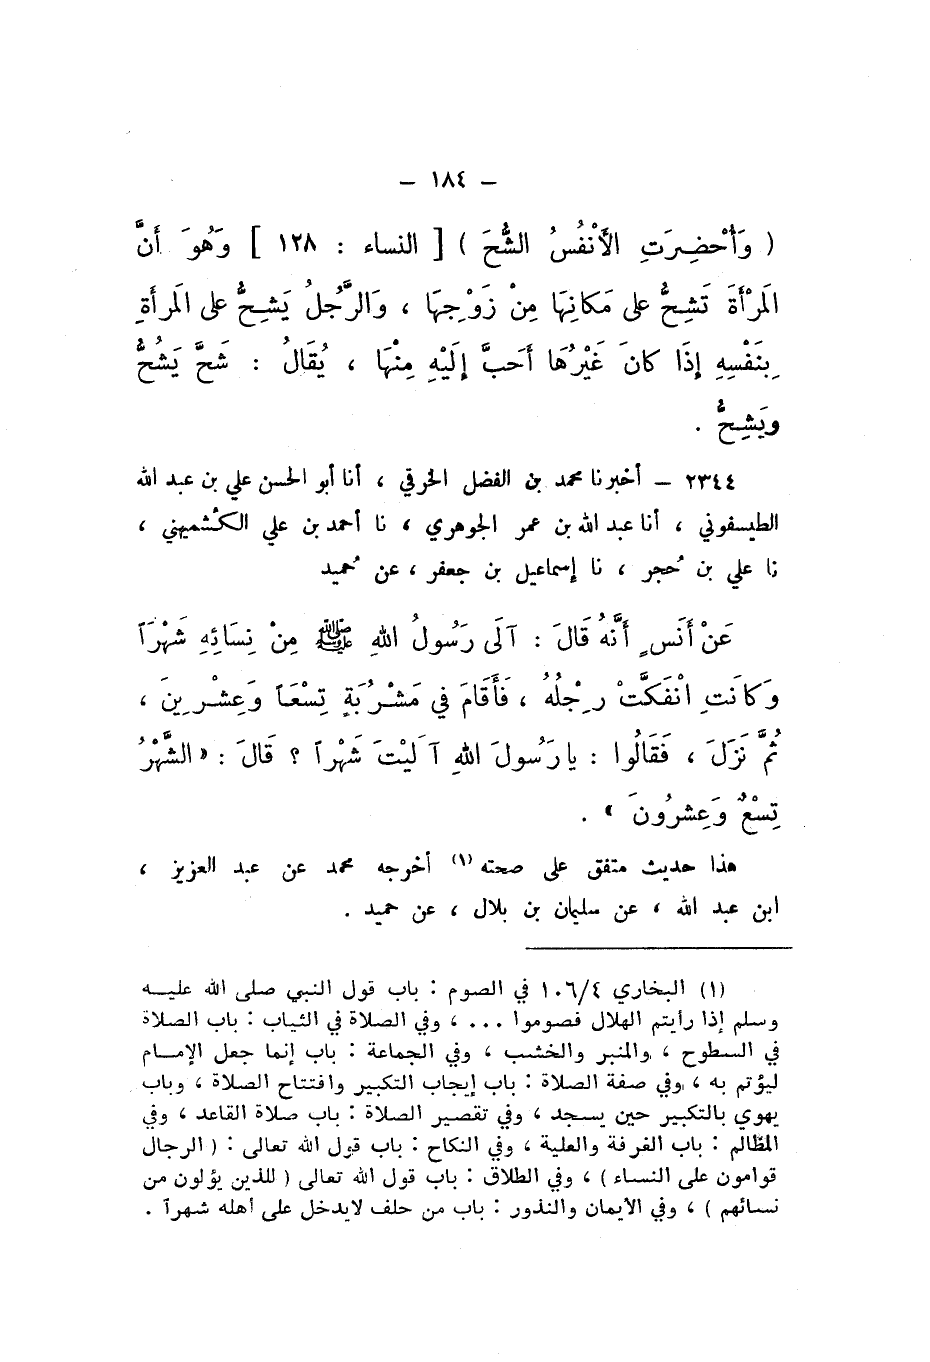 – ١٨٤ –
( وَأُحْضِرَتِ الأَنْفُسُ الشُّحَّ ) [ النساء : ١٢٨ ] وَهُوَ أَنَّ
المَرْأَةَ تَشِحُّ على مَكانِهَا مِنْ زَوْجِهَا ، وَالرَّجُلُ يَشِحُّ على المَرأَةِ
بِنَفْسِهِ إِذَا كانَ غَيْرُهَا أَحَبَّ إِلَيْهِ مِنْهَا ، يُقَالُ : شَحَّ يَشُحُّ
ويَشِحُّ .
٢٣٤٤ – أخبرنا محمد بن الفضل الخرقي ، أنا أبو الحسن علي بن عبد الله
الطيسفوني ، أنا عبد الله بن عمر الجوهري ، نا أحمد بن علي الكُشميهني ،
نا علي بن حُجر ، نا إسماعيل بن جعفر ، عن حُميد
عَنْ أَنَسٍ أَنَّهُ قَالَ : آلَى رَسُولُ اللهِ ﷺ مِنْ نِسَائِهِ شَهْرَاً
وَكَانَتِ انْفَكَّتْ رِجْلُهُ ، فَأَقَامَ في مَشْرُبَةٍ تِسْعَاً وَعِشْرِينَ ،
ثُمَّ نَزَلَ ، فَقَالُوا : يا رَسُولَ اللهِ آلَيْتَ شَهْراً ؟ قَالَ : « الشَّهْرُ
تِسْعٌ وَعِشرُونَ » .
هذا حديث متفق على صحته (١) أخرجه محمد عن عبد العزيز ،
ابن عبد الله ، عن سليمان بن بلال ، عن حميد .
(١) البخاري ١٠٦/٤ في الصوم : باب قول النبي صلى الله عليـه
وسلم إذا رأيتم الهلال فصوموا ... ، وفي الصلاة في الثياب : باب الصلاة
في السطوح ، والمنبر والخشب ، وفي الجماعة : باب إنما جعل الإمـام
ليؤتم به ، وفي صفة الصلاة : باب إيجاب التكبير وافتتاح الصلاة ، وباب
يهوي بالتكبير حين يسجد ، وفي تقصير الصلاة : باب صلاة القاعد ، وفي
المظالم : باب الغرفة والعلية ، وفي النكاح : باب قول الله تعالى : ( الرجال
قوامون على النساء ) ، وفي الطلاق : باب قول الله تعالى ( للذين يؤلون من
نسائهم ) ، وفي الأيمان والنذور : باب من حلف لايدخل على أهله شهراً .